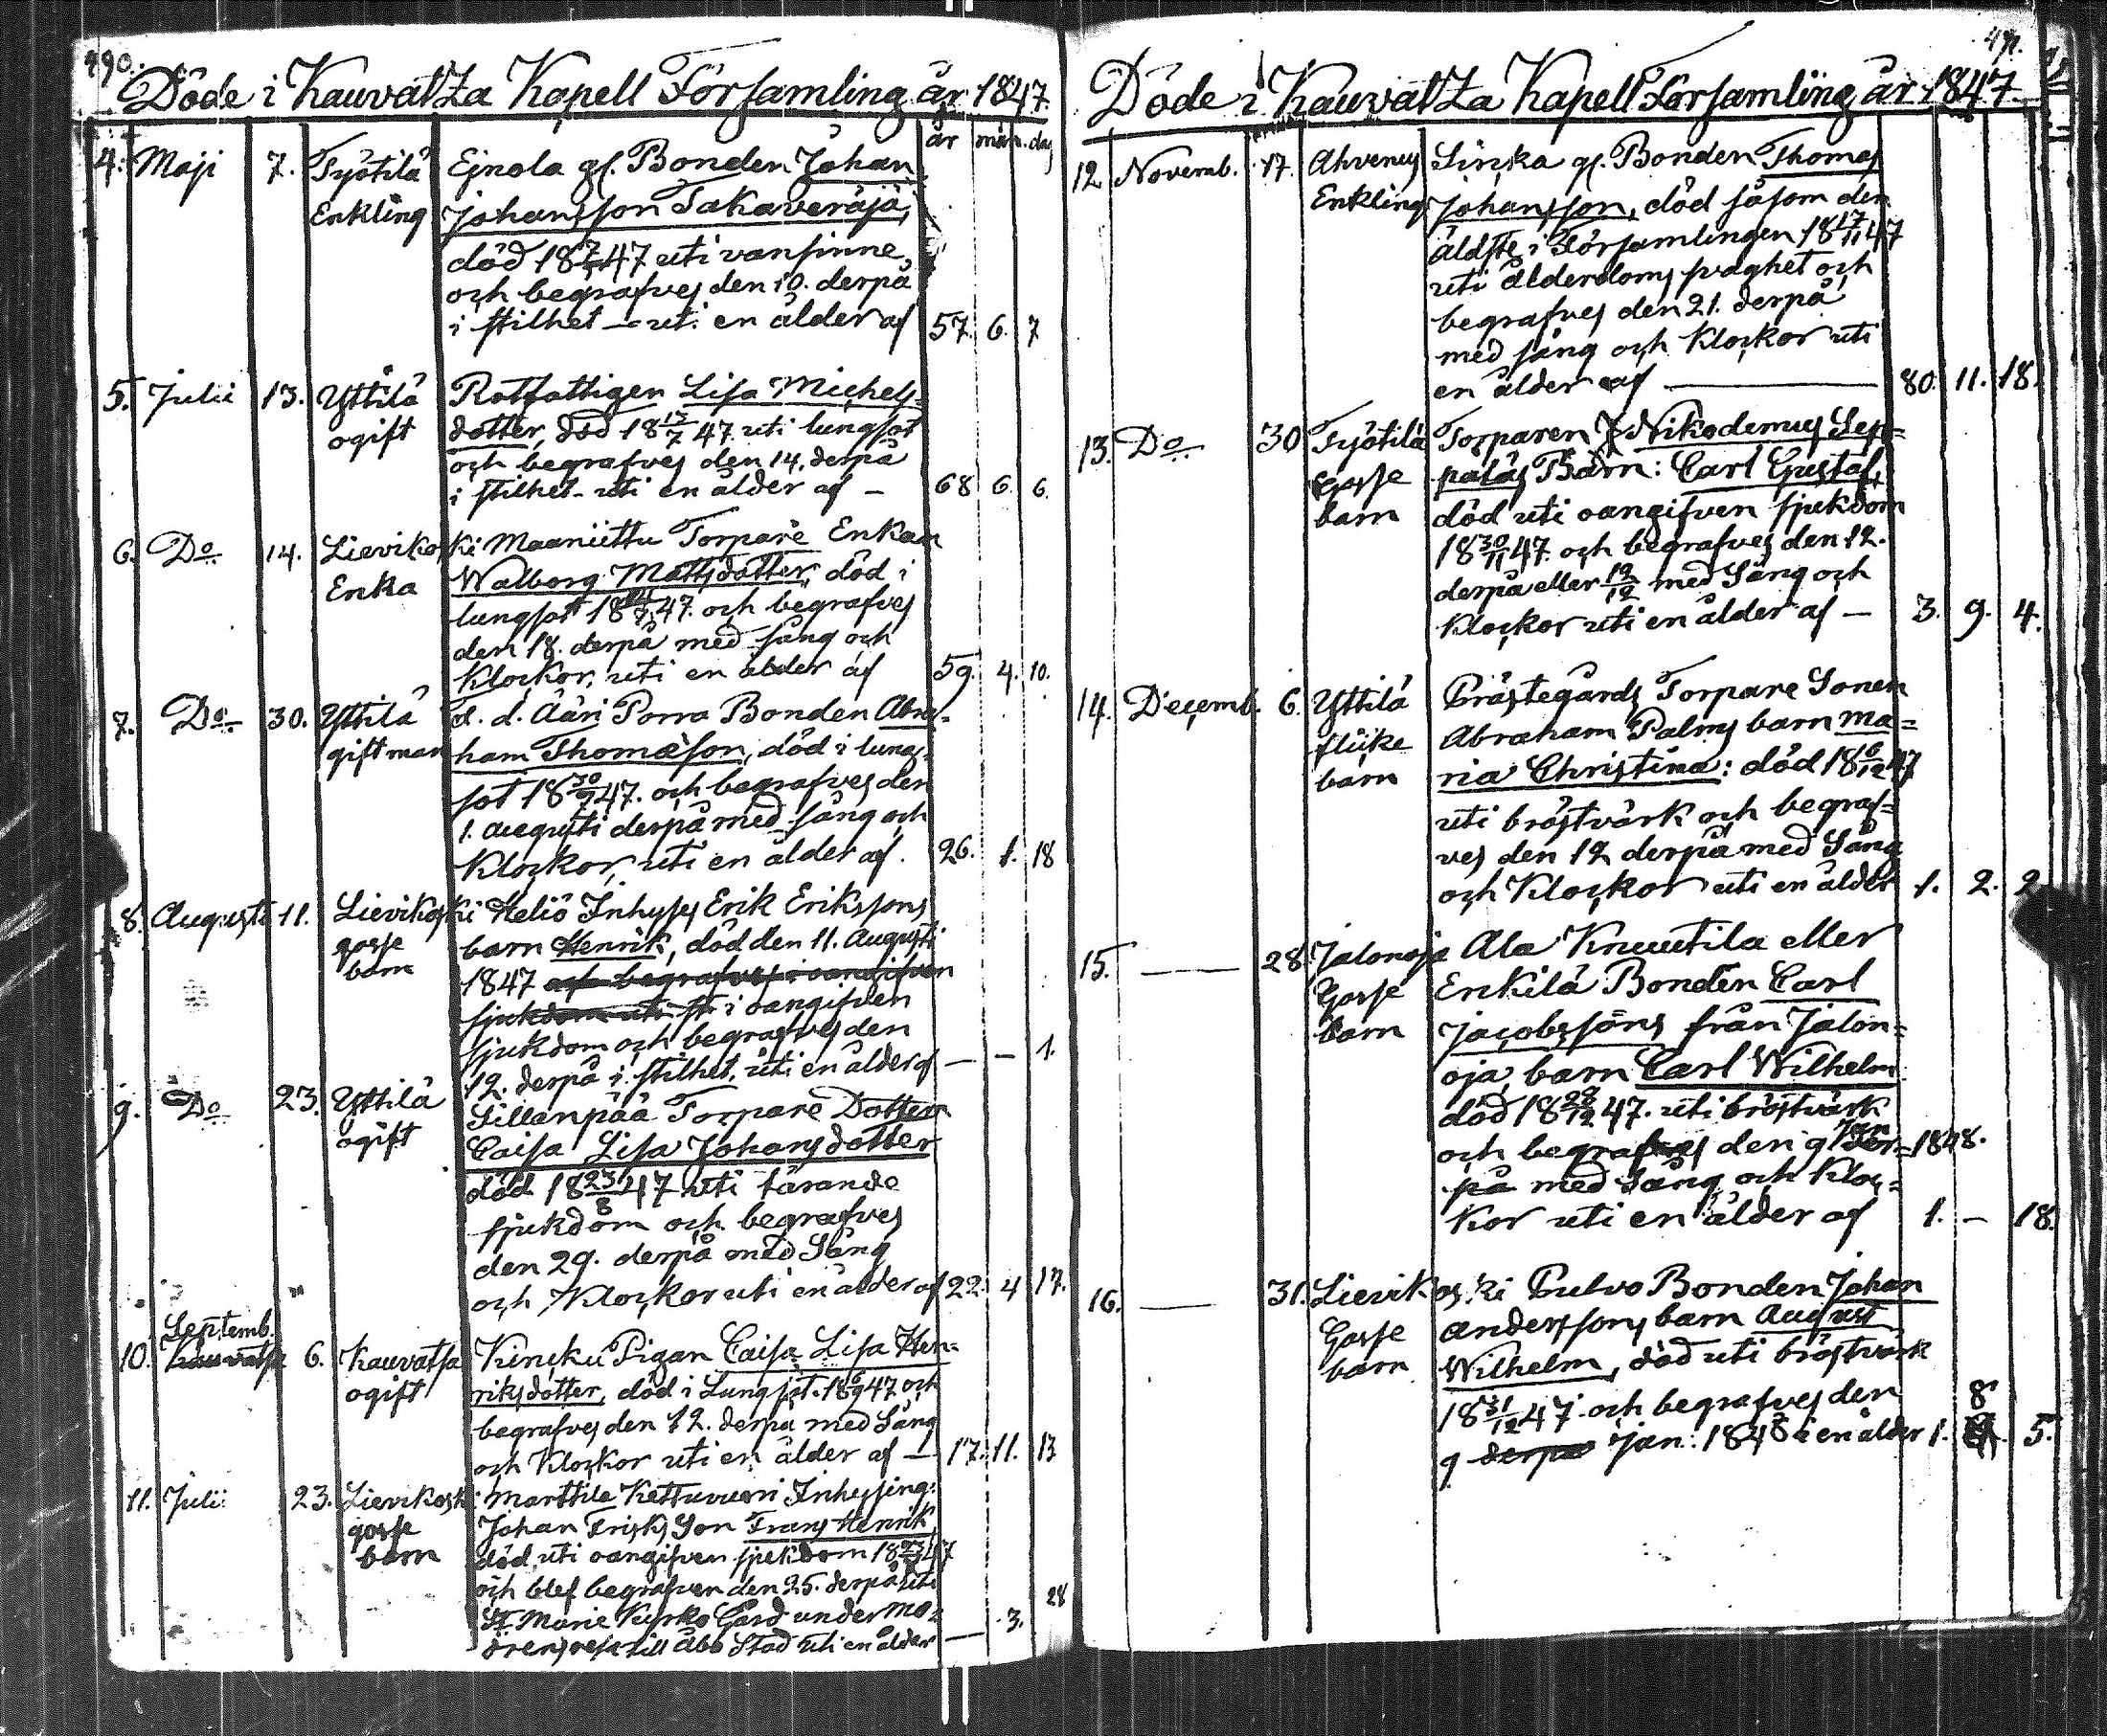 490.
Döde i Kauvatza Kapell Församling år 1847.
år mån. dag
4. Maji 7. Työtilä Ejnola gl. Bonden Johan
Enkling Johansson Takaveräjä,
död 18 7/5 47 uti vansinne,
och begrafves den 10. derpå
i stilhet — uti en ålder af 57. 6. 7
5. Julii 13. Yttilä Rotfattigen Lisa Michels-
ogift dotter, död 18 13/7 47 uti lungsot
och begrafves den 14. derpå
i stilhet - uti en ålder af — 68 6. 6.
6. Do 14. Lievikoski Maaniittu Torpare Enkan
Enka Walborg Mattsdotter, död i
lungsot 18 14/7 47. och begrafves
den 18. derpå med sång och
Klockor, uti en ålder af 59. 4. 10.
7. Do 30. Yttilä d. d. Ääri Porra Bonden Abra-
gift man ham Thomæson, död i lung-
sot 18 30/7 47. och begrafves den
1. augusti derpå med sång och
Klockor, uti en ålder af. 26. 1. 18
8. Augusti 11. Lievikoski Heliö Inhyses Erik Erikssons
gosse barn Henrik, död den 11. Augusti
barn 1847 och begrafves i oangifven
sjukdom uti st i oangifven
sjukdom och begrafves den
12. derpå i stilhet, uti en ålder af — — 1.
9. Do 23. Yttilä Sillanpää Torpare Dottern
ogift Caisa Lisa Johansdotter
död 18 23/8 47 uti tärande
sjukdom och begrafves
den 29. derpå med Sång
och Klockor uti en ålder af 22. 4 17.
Septemb.
10. Kauvatsa 6. Kauvatsa Kincku Pigan Caisa Lisa Hen-
ogift riksdotter, död i Lungsot. 18 6/9 47 och
begrafves den 12. derpå med Sång
och Klockor uti en ålder af — 17. 11. 13
11. Julii 23. Lievikoski Marttila Kettuvuori Inhysing:
gosse Johan Frisks Son Frans Henrik
barn död uti oangifven sjukdom 18 23/7 47
och blef begrafven den 25. derpå uti
St Marie Kyrko Gård under mo-
drens resa till Åbo Stad uti en ålder — 3. 28
491.
Döde i Kauvatza Kapell Församling år 1847.
12 Novemb. 17. Ahvenus Sinka gl. Bonden Thomas
Enkling Johansson, död såsom den
äldste i Församlingen 18 17/11 47
uti ålderdoms svaghet och
begrafves den 21. derpå
med sång och Klockor uti
en ålder af — 80. 11. 18.
13. Do 30 Työtilä Torparen Nikodemus Lep-
Gosse paläs Barn: Carl Gustaf,
barn död uti oangifven sjukdom
18 30/11 47. och begrafves den 12.
derpå eller 12/12 med Sång och
Klockor uti en ålder af — 3. 9. 4.
14. Decemb. 6. Yttilä Prästegårds Torpare Sonen
flicke Abraham Palms barn Ma-
barn ria Christina: död 18 6/12 47
uti bröstvärk och begraf-
ves den 12 derpå med Sång
och Klockor uti en ålder 1. 2. 2
15. — 28 Jalonoja Ala Knuutila eller
Gosse Enkilä Bonden Carl
barn Jacobssöns från Jalon-
oja, barn Carl Wilhelm
död 18 28/12 47. uti bröstvärk
och begrafves den 9 Jan der- 1848.
på med Sång och Kloc-
kor uti en ålder af 1. — 18.
16. — 31. Lievikoski Pulvo Bonden Johan
Gosse Anderssons barn August
barn Wilhelm, död uti bröstvärk
18 31/12 47. och begrafves den
9 derpå jan: 1848 i en ålder 1. 8 5.